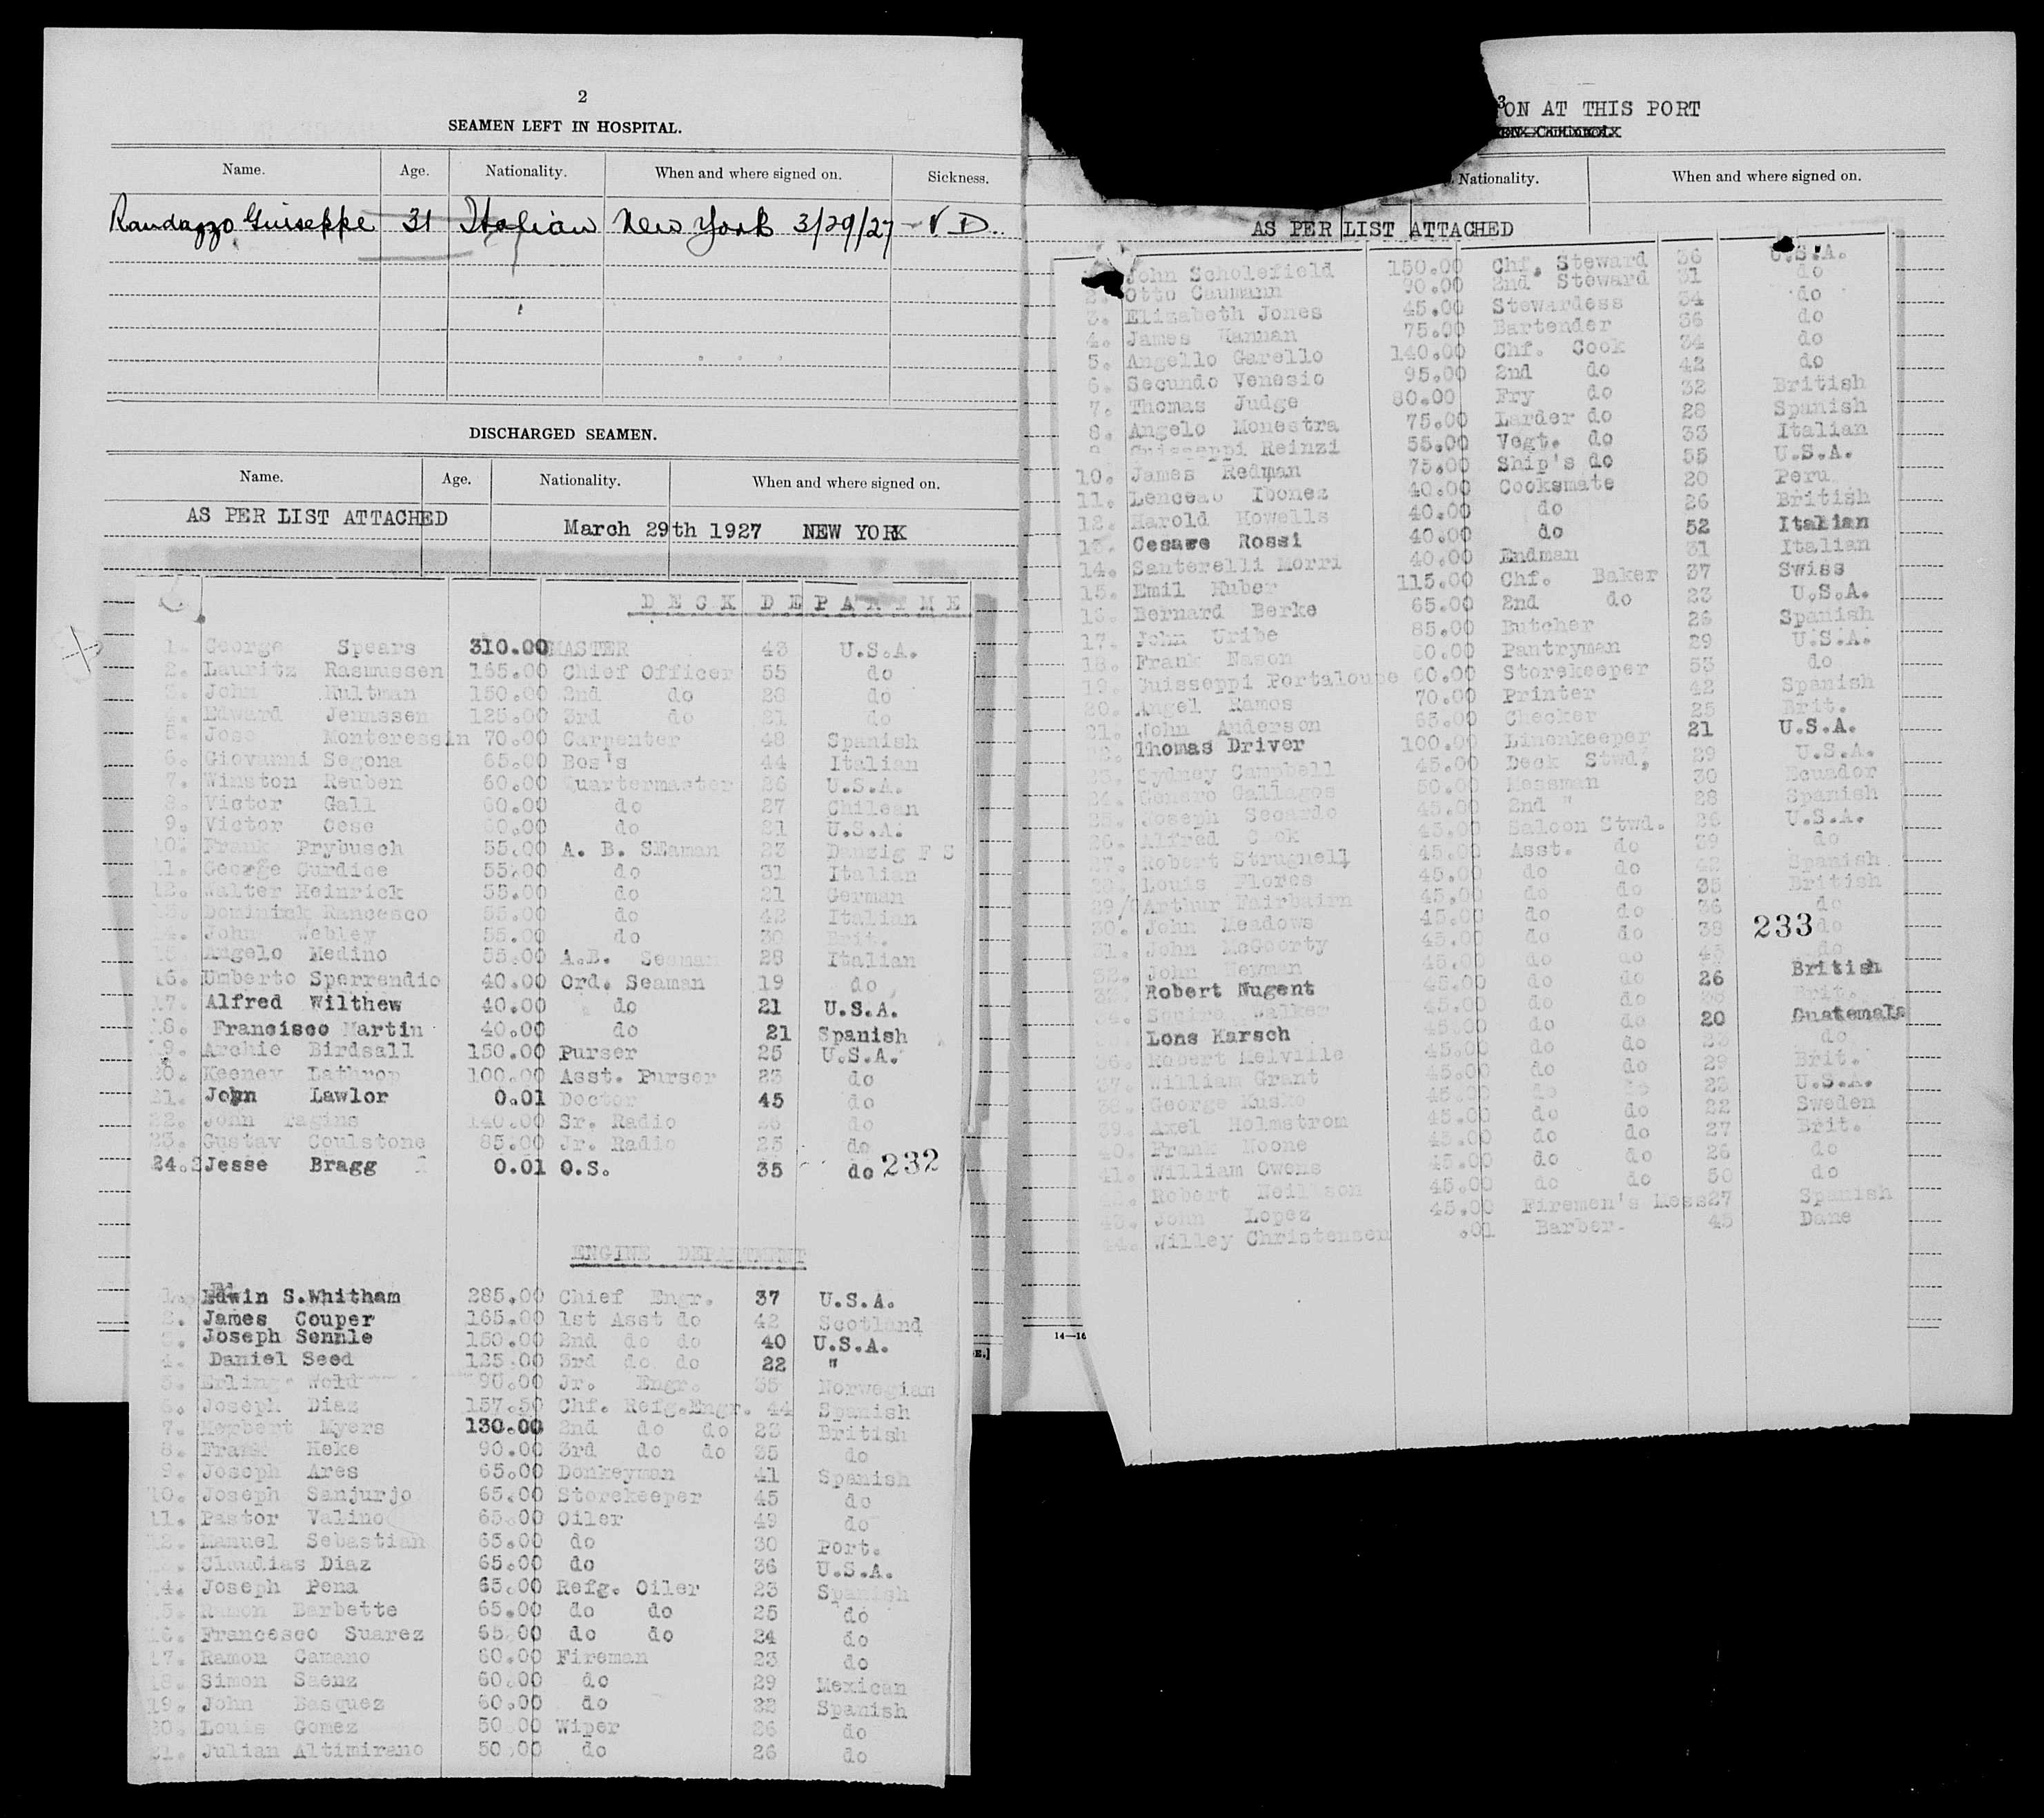 2
SEAMEN LEFT IN HOSPITAL.
Name. Age. Nationality. When and where signed on. Sickness.
Randazzo Guiseppe 31 Italian New York 3/29/27 - V D.
DISCHARGED SEAMEN.
Name. Age. Nationality. When and where signed on.
AS PER LIST ATTACHED March 29th 1927 NEW YORK
DECK DEPARTME
1. George Spears 310.00 MASTER 43 U.S.A.
2. Lauritz Rasmussen 165.00 Chief Officer 55 do
3. John Hultman 150.00 2nd do 28 do
4. Edward Jennssen 125.00 3rd do 21 do
5. Jose Monteressin 70.00 Carpenter 48 Spanish
6. Giovanni Segona 65.00 Bos's 44 Italian
7. Winston Reuben 60.00 Quartermaster 26 U.S.A.
8. Victor Gall 60.00 do 27 Chilean
9. Victor Gese 60.00 do 21 U.S.A.
10. Frank Prybusch 55.00 A. B. SEaman 23 Danzig F S
11. George Gurdice 55.00 do 31 Italian
12. Walter Heinrick 55.00 do 21 German
13. Dominick Rancesco 55.00 do 42 Italian
14. John Webley 55.00 do 30 Brit.
15. Angelo Medino 55.00 A.B. Seaman 28 Italian
16. Umberto Sperrendio 40.00 Ord. Seaman 19 do
17. Alfred Wilthew 40.00 do 21 U.S.A.
18. Francisco Martin 40.00 do 21 Spanish
9. Archie Birdsall 150.00 Purser 25 U.S.A.
20. Keeney Lathrop 100.00 Asst. Purser 23 do
21. John Lawlor 0.01 Doctor 45 do
22. John Pagins 140.00 Sr. Radio 26 do
23. Gustav Coulstone 85.00 Jr. Radio 25 do
24. Jesse Bragg 0.01 O.S. 35 do 232
ENGINE DEPARTMENT
1. Edwin S.Whitham 285.00 Chief Engr. 37 U.S.A.
2. James Couper 165.00 1st Asst do 42 Scotland
3. Joseph Sennle 150.00 2nd do do 40 U.S.A.
4. Daniel Seed 125.00 3rd do do 22 "
5. Erling Wold 90.00 Jr. Engr. 35 Norwegian
6. Joseph Diaz 157.50 Chf. Refg.Engr. 44 Spanish
7. Herbert Myers 130.00 2nd do do 23 British
8. Frank Heke 90.00 3rd do do 35 do
9. Joseph Ares 65.00 Donkeyman 41 Spanish
10. Joseph Sanjurjo 65.00 Storekeeper 45 do
11. Pastor Valino 65.00 Oiler 49 do
12. Manuel Sebastian 65.00 do 30 Port.
Claudias Diaz 65.00 do 36 U.S.A.
14. Joseph Pena 65.00 Refg. Oiler 23 Spanish
15. Ramon Barbette 65.00 do do 25 do
16. Francesco Suarez 65.00 do do 24 do
17. Ramon Camano 60.00 Fireman 23 do
18. Simon Saenz 60.00 do 29 Mexican
19. John Basquez 60.00 do 22 Spanish
20. Louis Gomez 50.00 Wiper 26 do
21. Julian Altimirano 50.00 do 26 do
3
ON AT THIS PORT
Nationality. When and where signed on.
AS PER LIST ATTACHED
John Scholefield 150.00 Chf. Steward 36 U.S.A.
2. Otto Caumann 90.00 2nd Steward 31 do
3. Elizabeth Jones 45.00 Stewardess 34 do
4. James Hannan 75.00 Bartender 36 do
5. Angello Garello 140.00 Chf. Cook 34 do
6. Secundo Venesio 95.00 2nd do 42 do
7. Thomas Judge 80.00 Fry do 32 British
8. Angelo Monestra 75.00 Larder do 28 Spanish
9. Guisseppi Reinzi 55.00 Vegt. do 33 Italian
10. James Redman 75.00 Ship's do 55 U.S.A.
11. Lenceao Ibonez 40.00 Cooksmate 20 Peru
12. Harold Howells 40.00 do 26 British
13. Cesare Rossi 40.00 do 52 Italian
14. Santerelli Morri 40.00 Endman 31 Italian
15. Emil Huber 115.00 Chf. Baker 37 Swiss
16. Bernard Berke 65.00 2nd do 23 U.S.A.
17. John Uribe 85.00 Butcher 26 Spanish
18. Frank Nason 60.00 Pantryman 29 U.S.A.
19. Guisseppi Portaloupe 60.00 Storekeeper 53 do
20. Angel Ramos 70.00 Printer 42 Spanish
21. John Anderson 65.00 Checker 25 Brit.
22. Thomas Driver 100.00 Linenkeeper 21 U.S.A.
23. Sydney Campbell 45.00 Deck Stwd. 29 U.S.A.
24. Genaro Gallagos 50.00 Messman 30 Ecuador
25. Joseph Secardo 45.00 2nd " 28 Spanish
26. Alfred Cook 45.00 Saloon Stwd. 26 U.S.A.
27. Robert Strugnell 45.00 Asst. do 39 do
28. Louis Flores 45.00 do do 42 Spanish
29. Arthur Fairbairn 45.00 do do 35 British
30. John Meadows 45.00 do do 36 do
31. John McGoorty 45.00 do do 38 233 do
32. John Newman 45.00 do do 43 do
33. Robert Nugent 45.00 do do 26 British
34. Squire Walker 45.00 do do Brit.
Lons Karsch 45.00 do do 20 Guatemala
36. Robert Melville 45.00 do do 23 do
37. William Grant 45.00 do do 29 Brit.
38. George Kuske 45.00 do do 23 U.S.A.
39. Axel Holmstrom 45.00 do do 22 Sweden
40. Frank Noone 45.00 do do 27 Brit.
41. William Owens 45.00 do do 26 do
42. Robert Neillson 45.00 do do 50 do
43. John Lopez 45.00 Firemen's Mess 27 Spanish
44. Willey Christensen .01 Barber 45 Dane
14—16